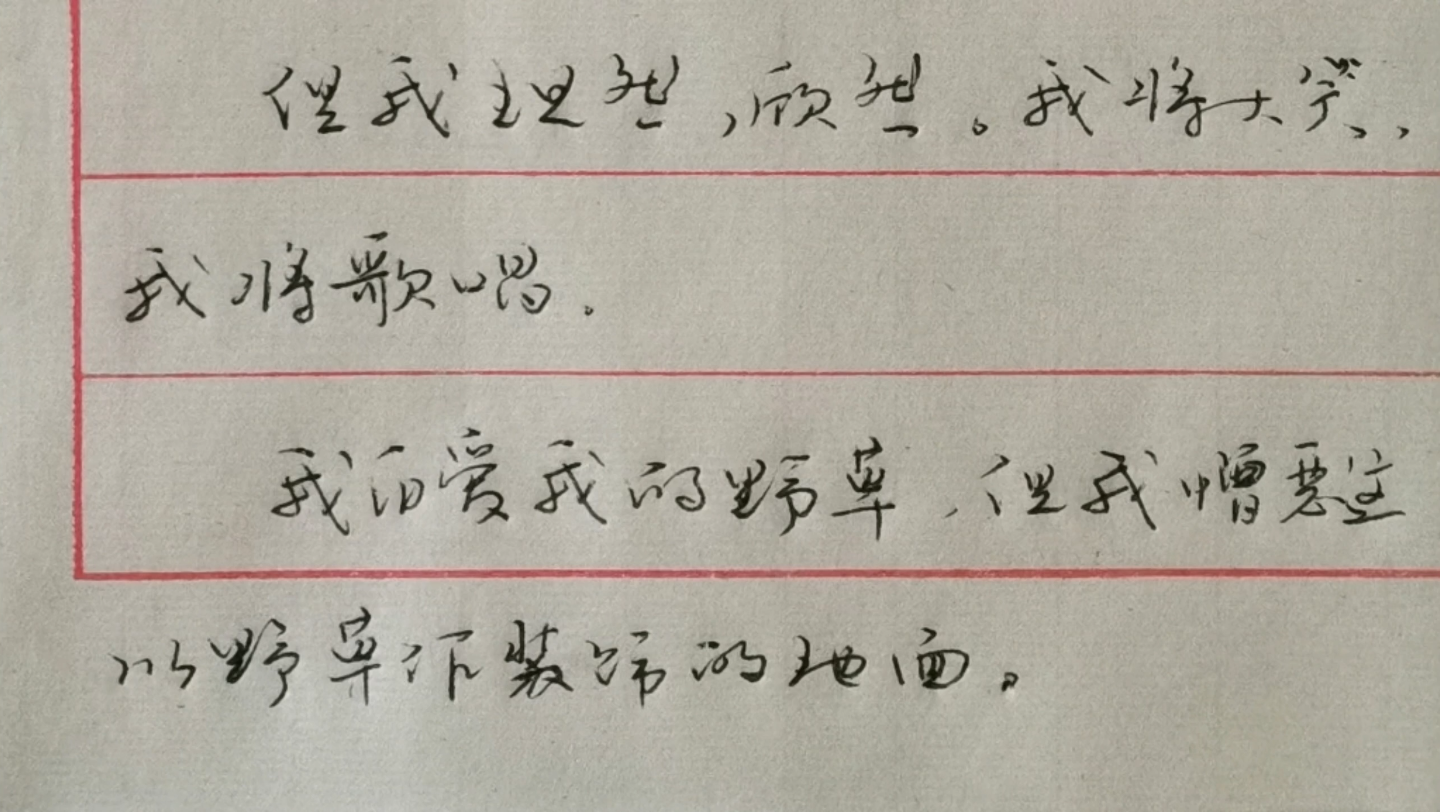 但我坦然，欣然。我将大笑，
我将歌唱。
我自爱我的野草，但我憎恶这
以野草作装饰的地面。